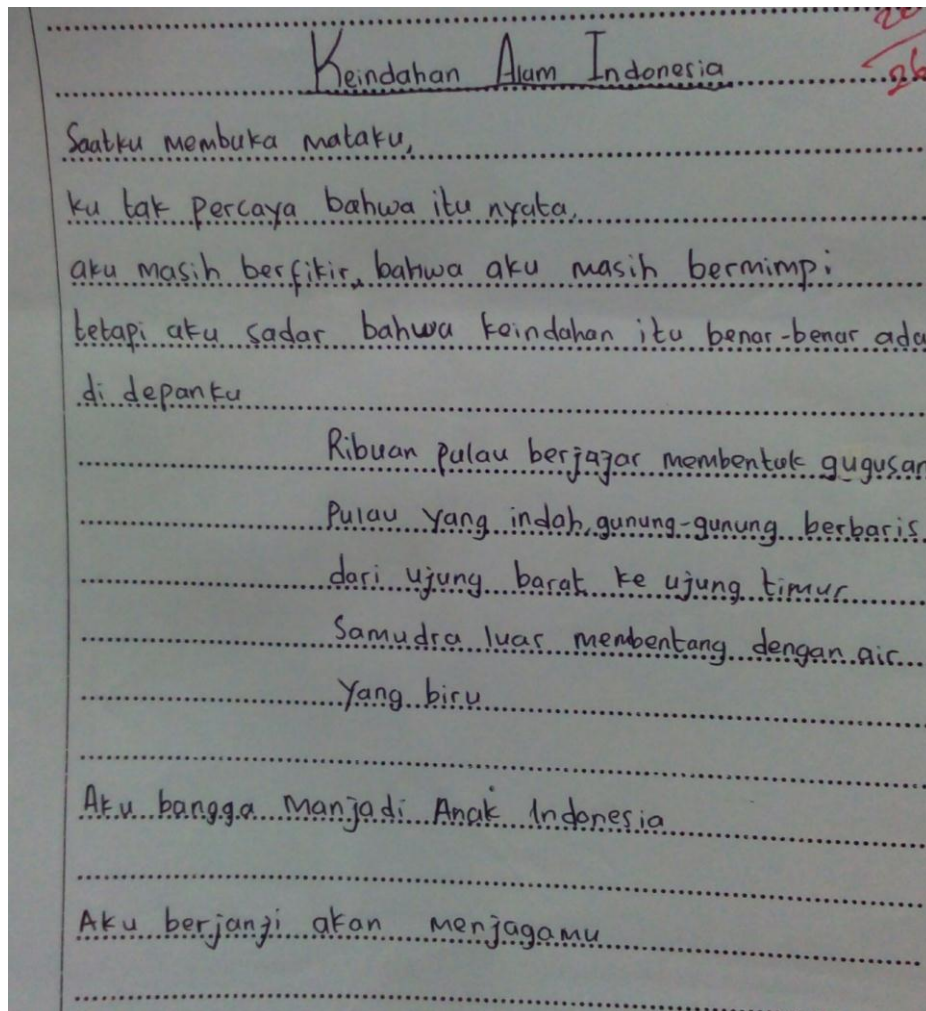 Keindahan Alam Indonesia
26
Saatku membuka mataku,
ku tak percaya bahwa itu nyata,
aku masih berfikir, bahwa aku masih bermimpi
tetapi aku sadar bahwa keindahan itu benar-benar ada
di depanku
Ribuan pulau berjajar membentuk gugusan
Pulau yang indah, gunung-gunung berbaris
dari ujung barat ke ujung timur
Samudra luas membentang dengan air
yang biru
Aku bangga Manjadi Anak Indonesia
Aku berjanji akan menjagamu